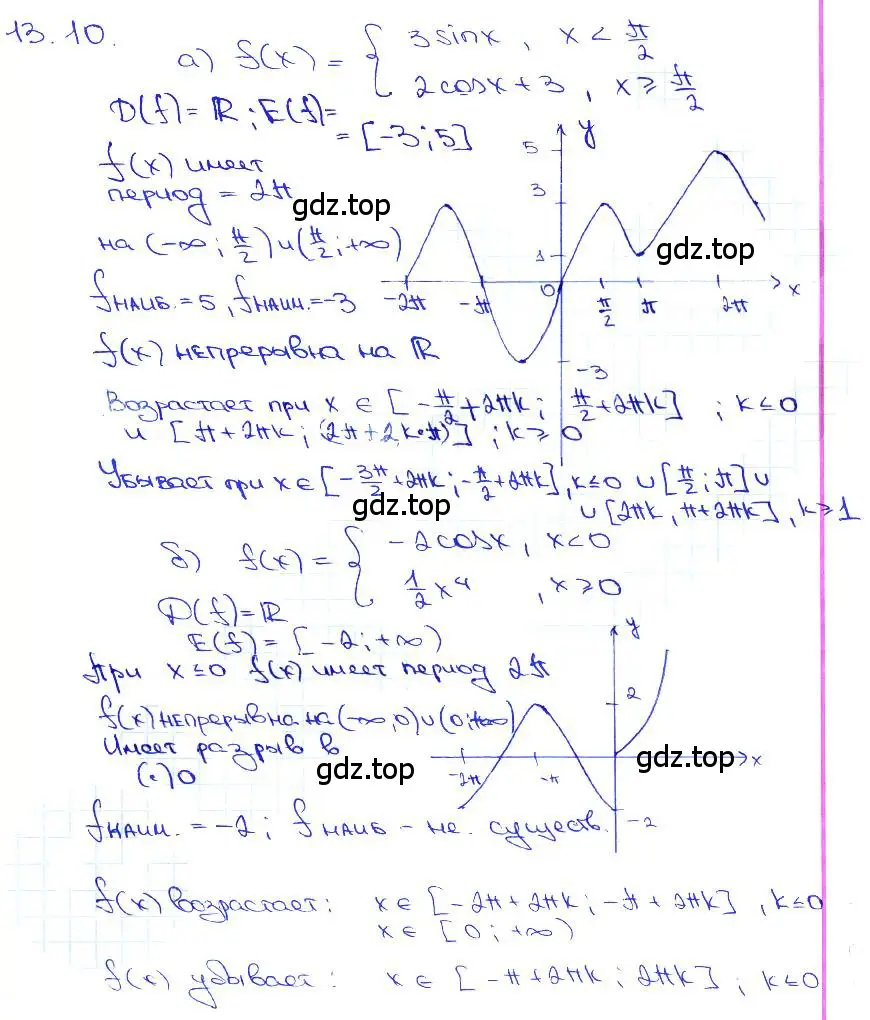 13.10.
а) f(x) = { 3sinx, x < π/2
2cosx+3, x ≥ π/2
D(f) = ℝ; E(f)=
= [-3;5]
f(x) имеет
период = 2π
на (-∞; π/2) ∪ (π/2; +∞)
fнаиб. = 5, fнаим. = -3
f(x) непрерывна на ℝ
y
5
3
1
0
-2π
-π
π/2
π
2π
x
-3
gdz.top
gdz.top
Возрастает при x ∈ [-π/2+2πk; π/2+2πk]; k ≤ 0
и [π+2πk; (2π+2k·π)]; k ≥ 0
Убывает при x ∈ [-3π/2+2πk; -π/2+2πk], k≤0 ∪ [π/2; π] ∪
∪ [2πk, π+2πk], k ≥ 1
gdz.top
б) f(x) = { -2cosx, x<0
1/2 x⁴, x ≥ 0
D(f) = ℝ
E(f) = [-2; +∞)
При x ≤ 0 f(x) имеет период 2π
f(x) непрерывна на (-∞, 0) ∪ (0; +∞)
Имеет разрыв в
(·) 0
y
2
-2π
-π
x
-2
gdz.top
gdz.top
fнаим. = -2; fнаиб - не. существ.
f(x) возрастает: x ∈ [-2π+2πk; -π+2πk], k≤0
x ∈ [0; +∞)
f(x) убывает: x ∈ [-π+2πk; 2πk]; k≤0